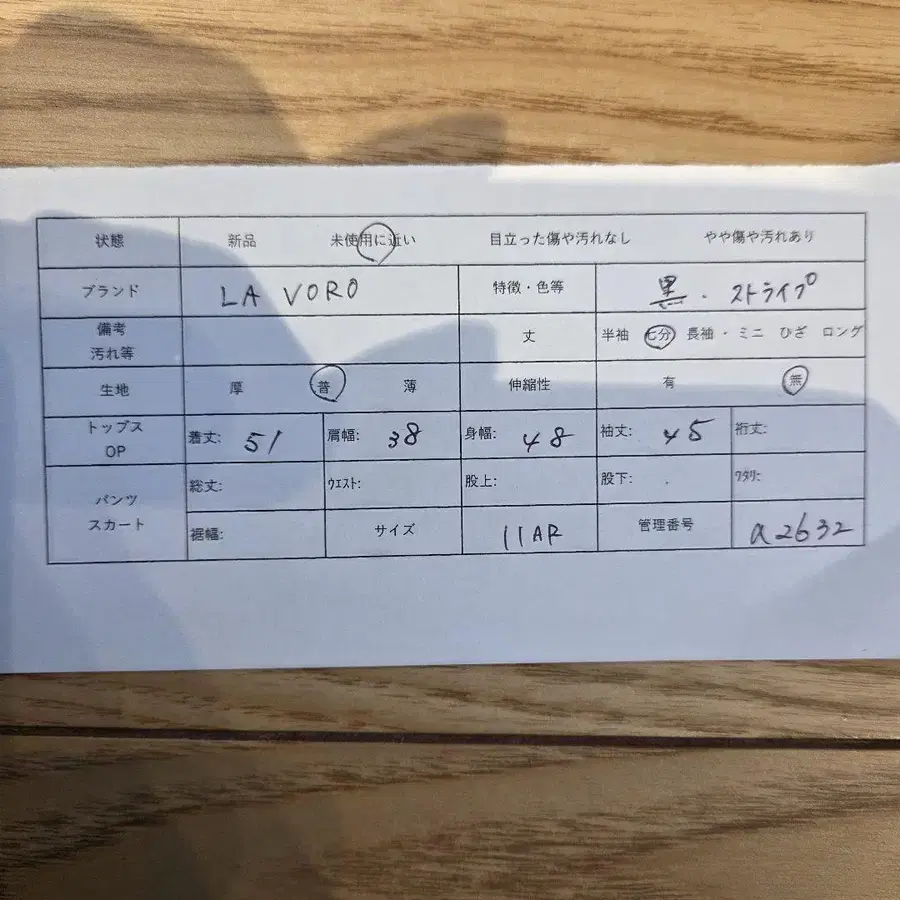 状態 新品 未使用に近い 目立った傷や汚れなし やや傷や汚れあり
ブランド LA VORO 特徴・色等 黒・ストライプ
備考
汚れ等 丈 半袖 七分 長袖・ミニ ひざ ロング
生地 厚 普 薄 伸縮性 有 無
トップス
OP 着丈: 51 肩幅: 38 身幅: 48 袖丈: 45 裄丈:
パンツ
スカート 総丈: ウエスト: 股上: 股下: ワタリ:
裾幅: サイズ 11AR 管理番号 a2632